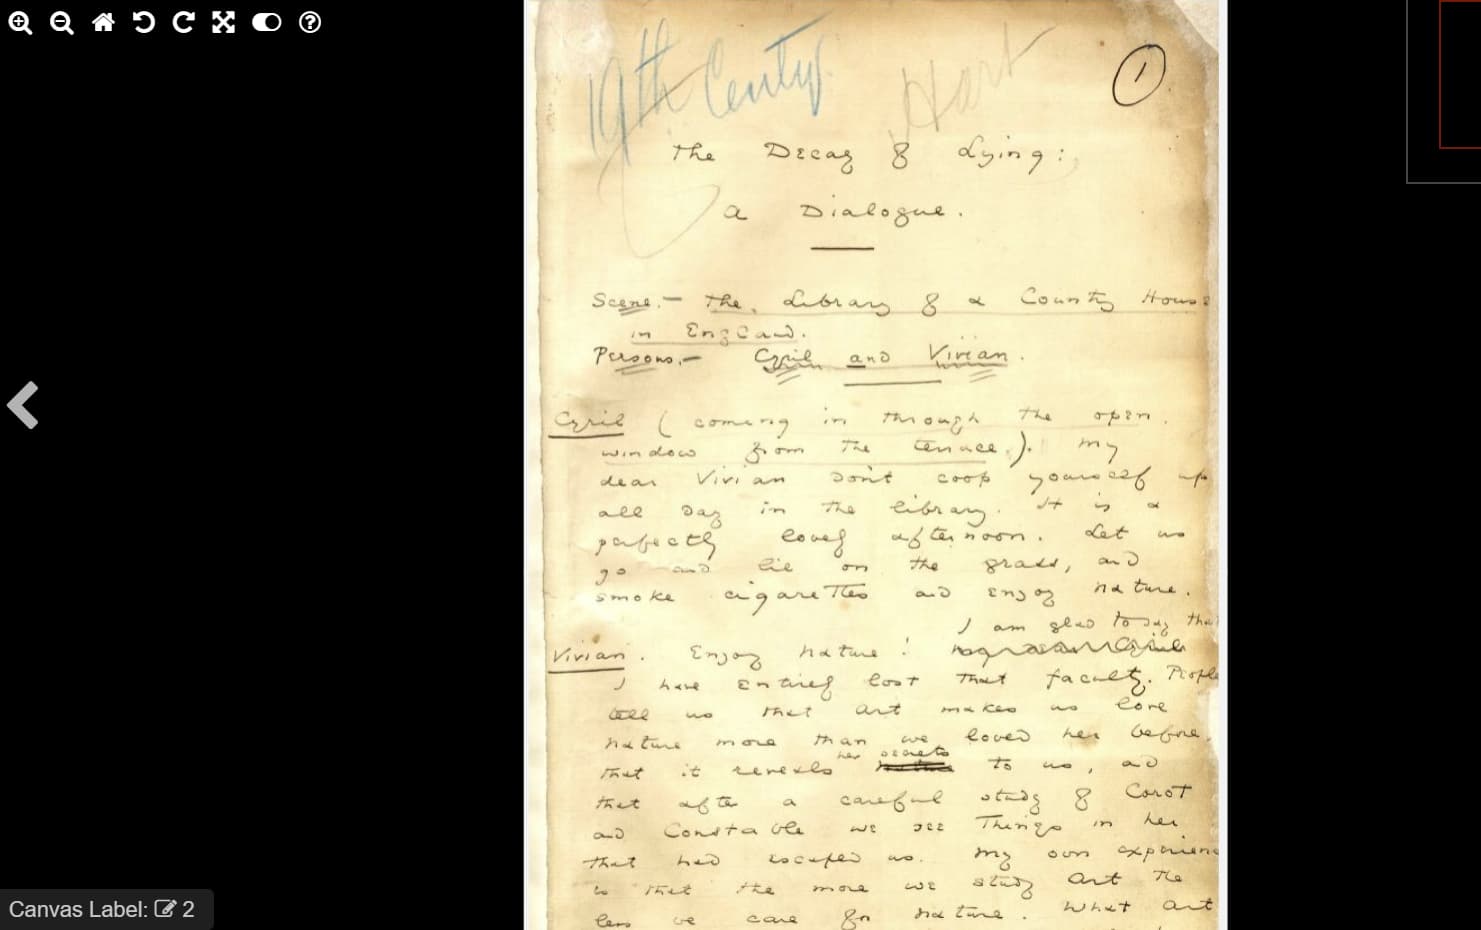 19th Centy. Hart 1
The Decay of Lying:
a Dialogue.
Scene.- The Library of a Country House
in England.
Persons.- Cyril and Vivian.
Cyril (coming in through the open
window from the terrace). My
dear Vivian don't coop yourself up
all day in the library. It is a
perfectly lovely afternoon. Let us
go and lie on the grass, and
smoke cigarettes and enjoy nature.
I am glad to say that
Vivian. Enjoy nature!
I have entirely lost that faculty. People
tell us that art makes us love
nature more than we loved her before,
her secrets
that it reveals to us, and
that after a careful study of Corot
and Constable we see things in her
that had escaped us. My own experience
is that the more we study art the
less we care for nature. What art
Canvas Label: 2